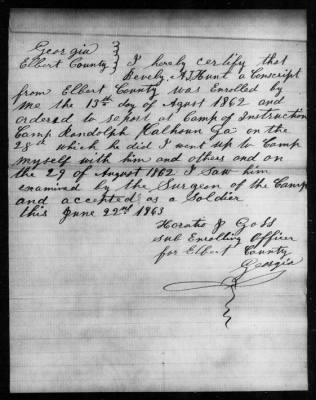 Georgia
Elbert County } I hereby certify that
Revely. A. J. Hunt a Conscript
from Elbert County was Enrolled by
me the 13th day of Agost 1862 and
ordered to report at Camp of Instruction
Camp Randolph Kalhoun Ga on the
28d which he did I went up to Camp
myself with him and others and on
the 29 of August 1862 I saw him
examined by the Surgeon of the Camp
and accepted as a Soldier
this June 22nd 1863
Horatio J Goss
sub Enrolling Officer
for Elbert County
Georgia